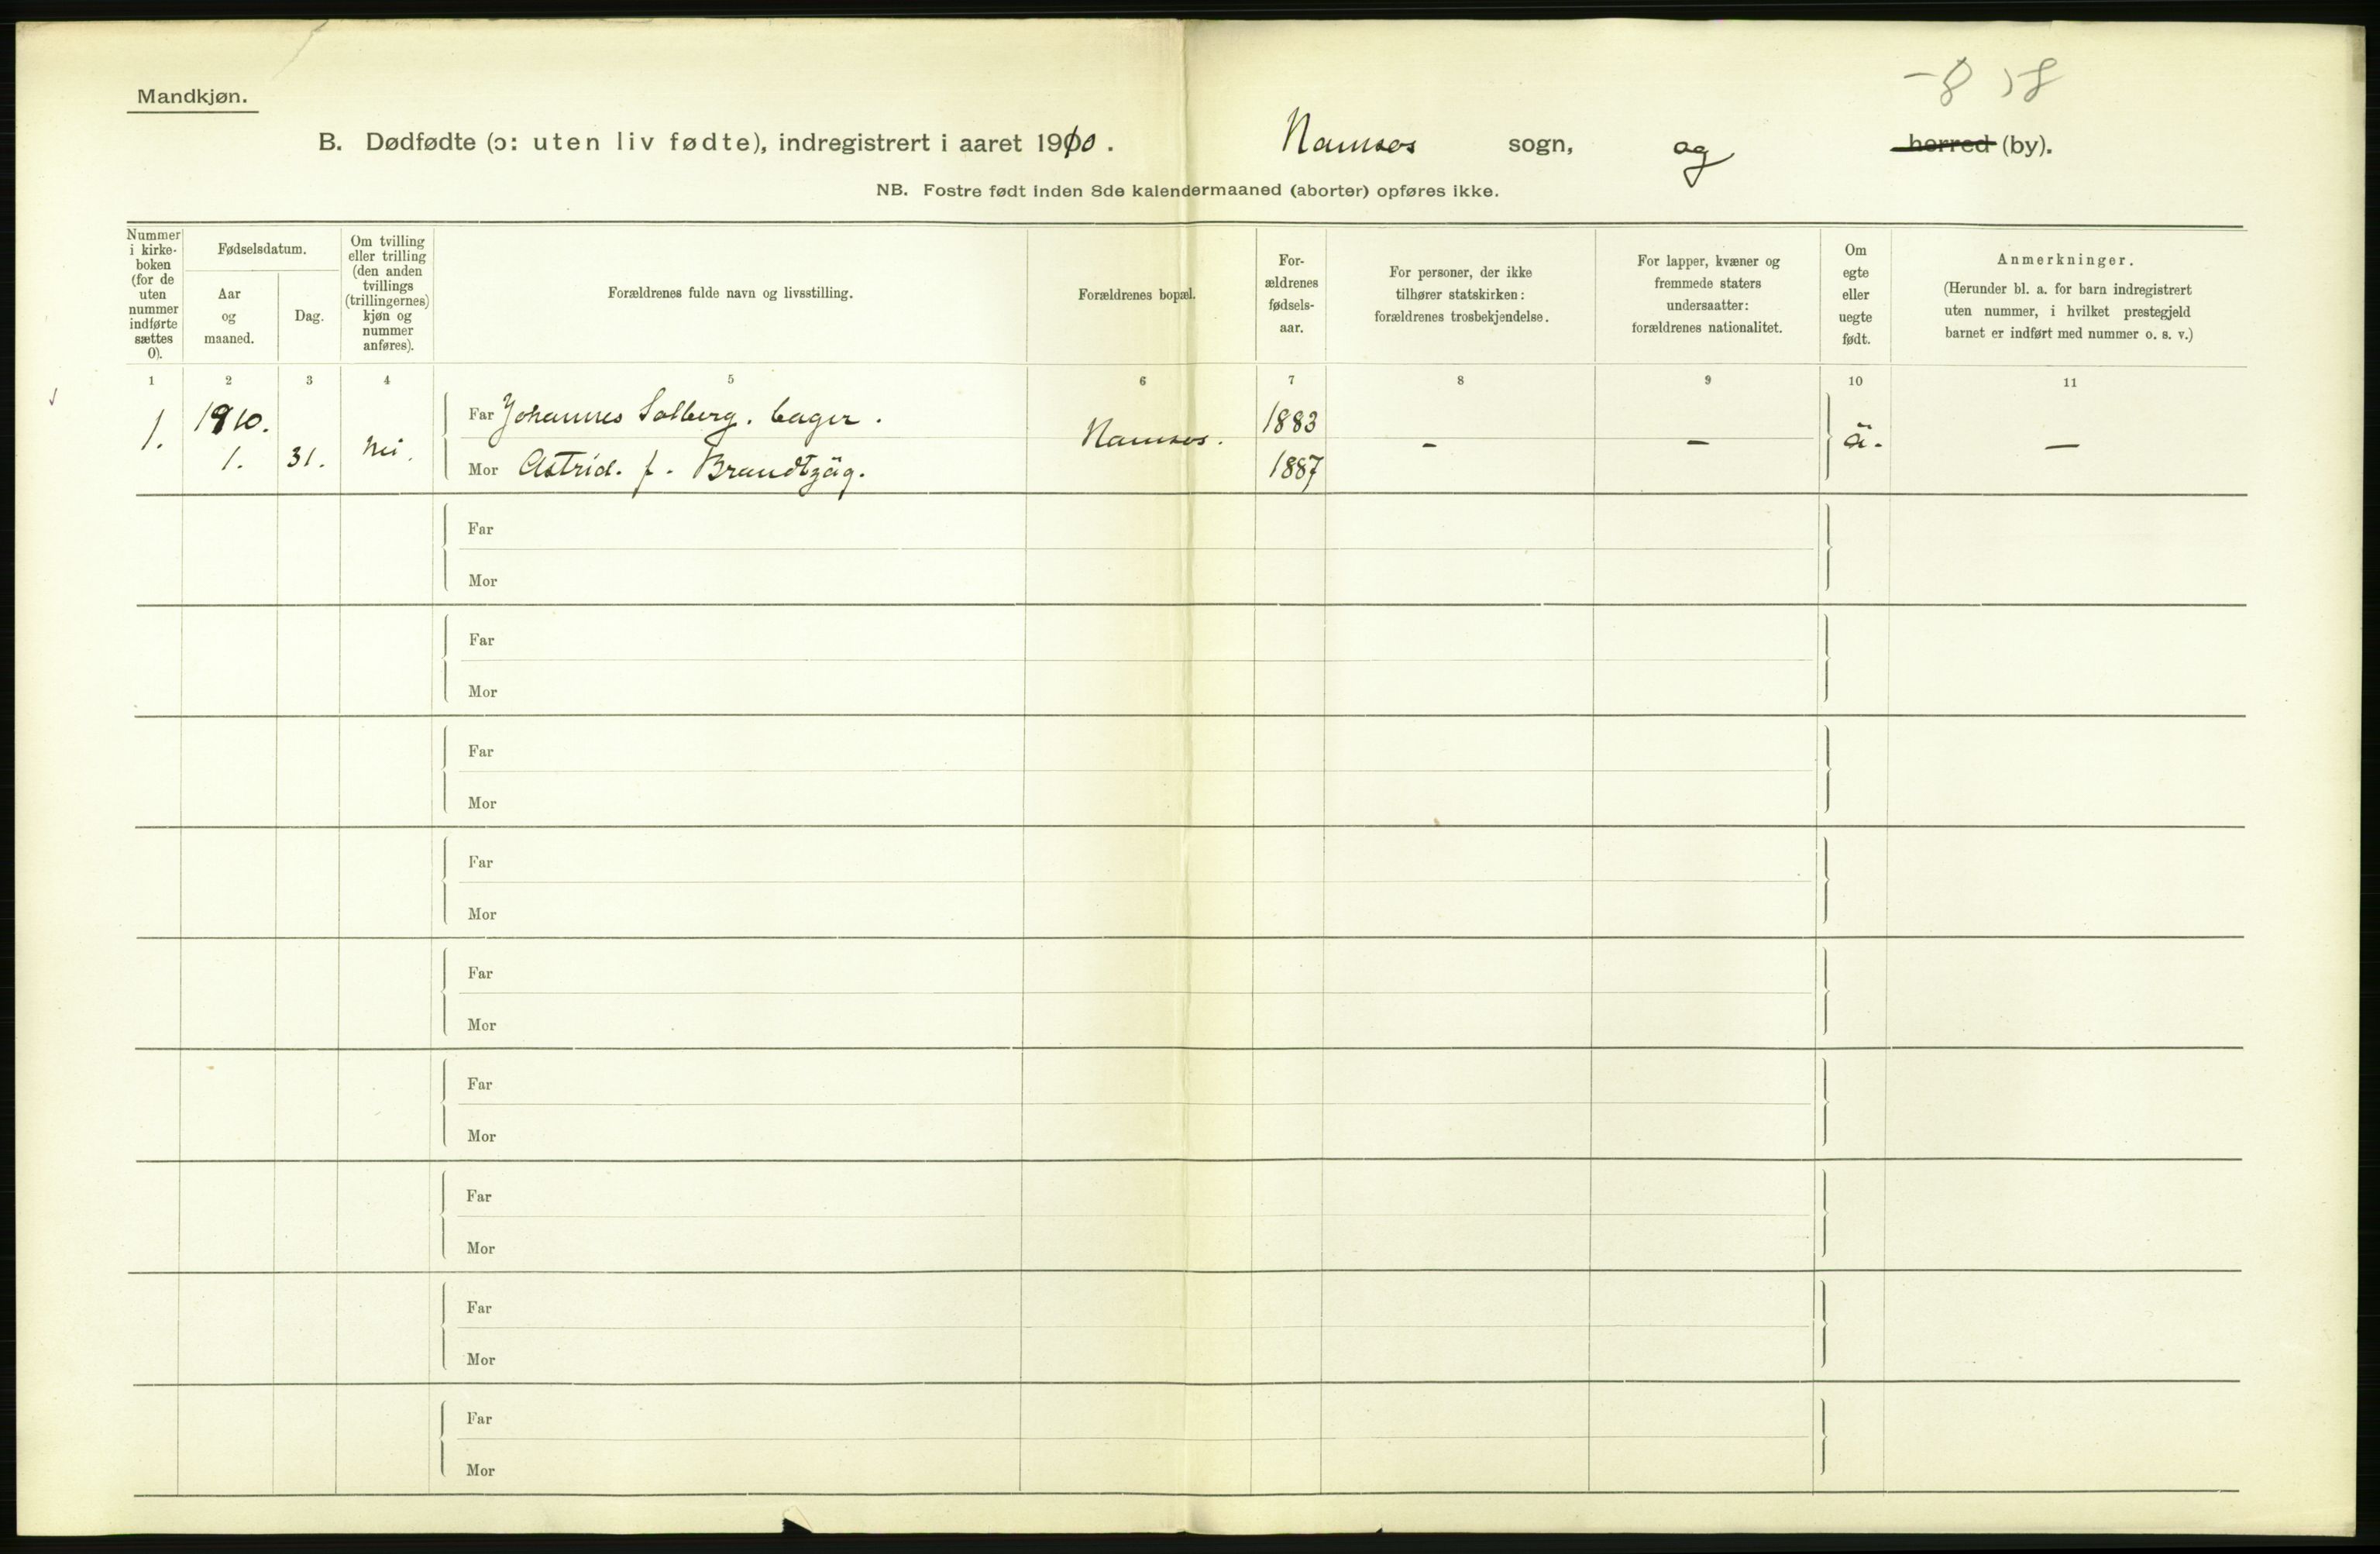 Mandkjøn.
B. Dødfødte (ɔ: uten liv fødte), indregistrert i aaret 1910. Namsos sogn, og herred (by).
NB. Fostre født inden 8de kalendermaaned (aborter) opføres ikke.
Nummer i kirke-boken (for de uten nummer indførte sættes 0).
Fødselsdatum.
Aar og maaned.
Dag.
Om tvilling eller trilling (den anden tvillings (trillingernes) kjøn og nummer anføres).
Forældrenes fulde navn og livsstilling.
Forældrenes bopæl.
For-ældrenes fødsels-aar.
For personer, der ikke tilhører statskirken: forældrenes trosbekjendelse.
For lapper, kvæner og fremmede staters undersaatter: forældrenes nationalitet.
Om egte eller uegte født.
Anmerkninger.
(Herunder bl. a. for barn indregistrert uten nummer, i hvilket prestegjeld barnet er indført med nummer o. s. v.)
1 2 3 4 5 6 7 8 9 10 11
1. 1910. 1. 31. nei. Far Johannes Solberg. bager. Namsos. 1883 - - ä. —
Mor Astrid. f. Brandtzäg. 1887
Far
Mor
Far
Mor
Far
Mor
Far
Mor
Far
Mor
Far
Mor
Far
Mor
Far
Mor
Far
Mor